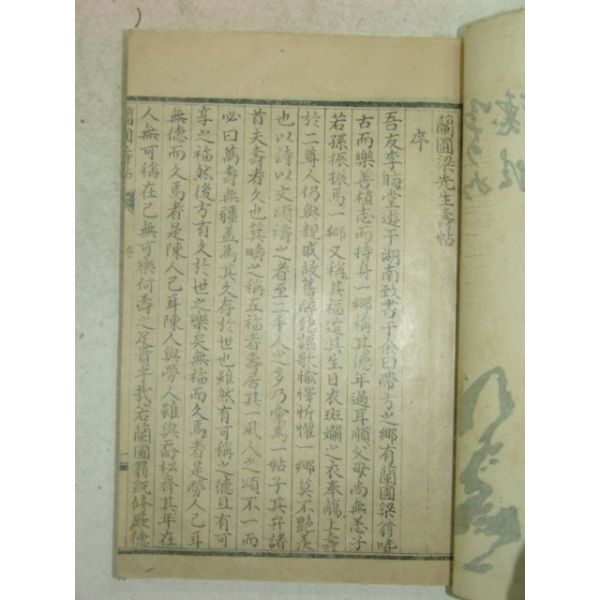 蘭圃梁先生壽帖
序
吾友李晦堂遊乎湖南致書于余曰帶方之鄕有蘭圃梁翁嗜
古而樂善植志而持身一鄕稱其德年過耳順父母尚無恙子
若孫振振焉一鄕又稱其福這其生日衣斑斕之衣奉觴上壽
於二尊人仍與親戚故舊 謳歌愉懌忻懽一鄕莫不艶羨
也以詩以文頌禱之者至二千人之多乃彙爲一帖子其弁諸
首夫壽者久也箕疇之稱五福者壽居其一風人之頌不一而
必曰萬壽無疆盖爲其久存於世也雖然有可稱之德且有可
享之福然後方有久於世之樂矣無福而久焉者是勞人已耳
無德而久焉者是陳人已耳陳人與勞人雖與喬松齊其年在
人無可稱在己無可樂何壽之足貴乎哉若蘭圃翁旣修厥德
蘭圃壽帖
序